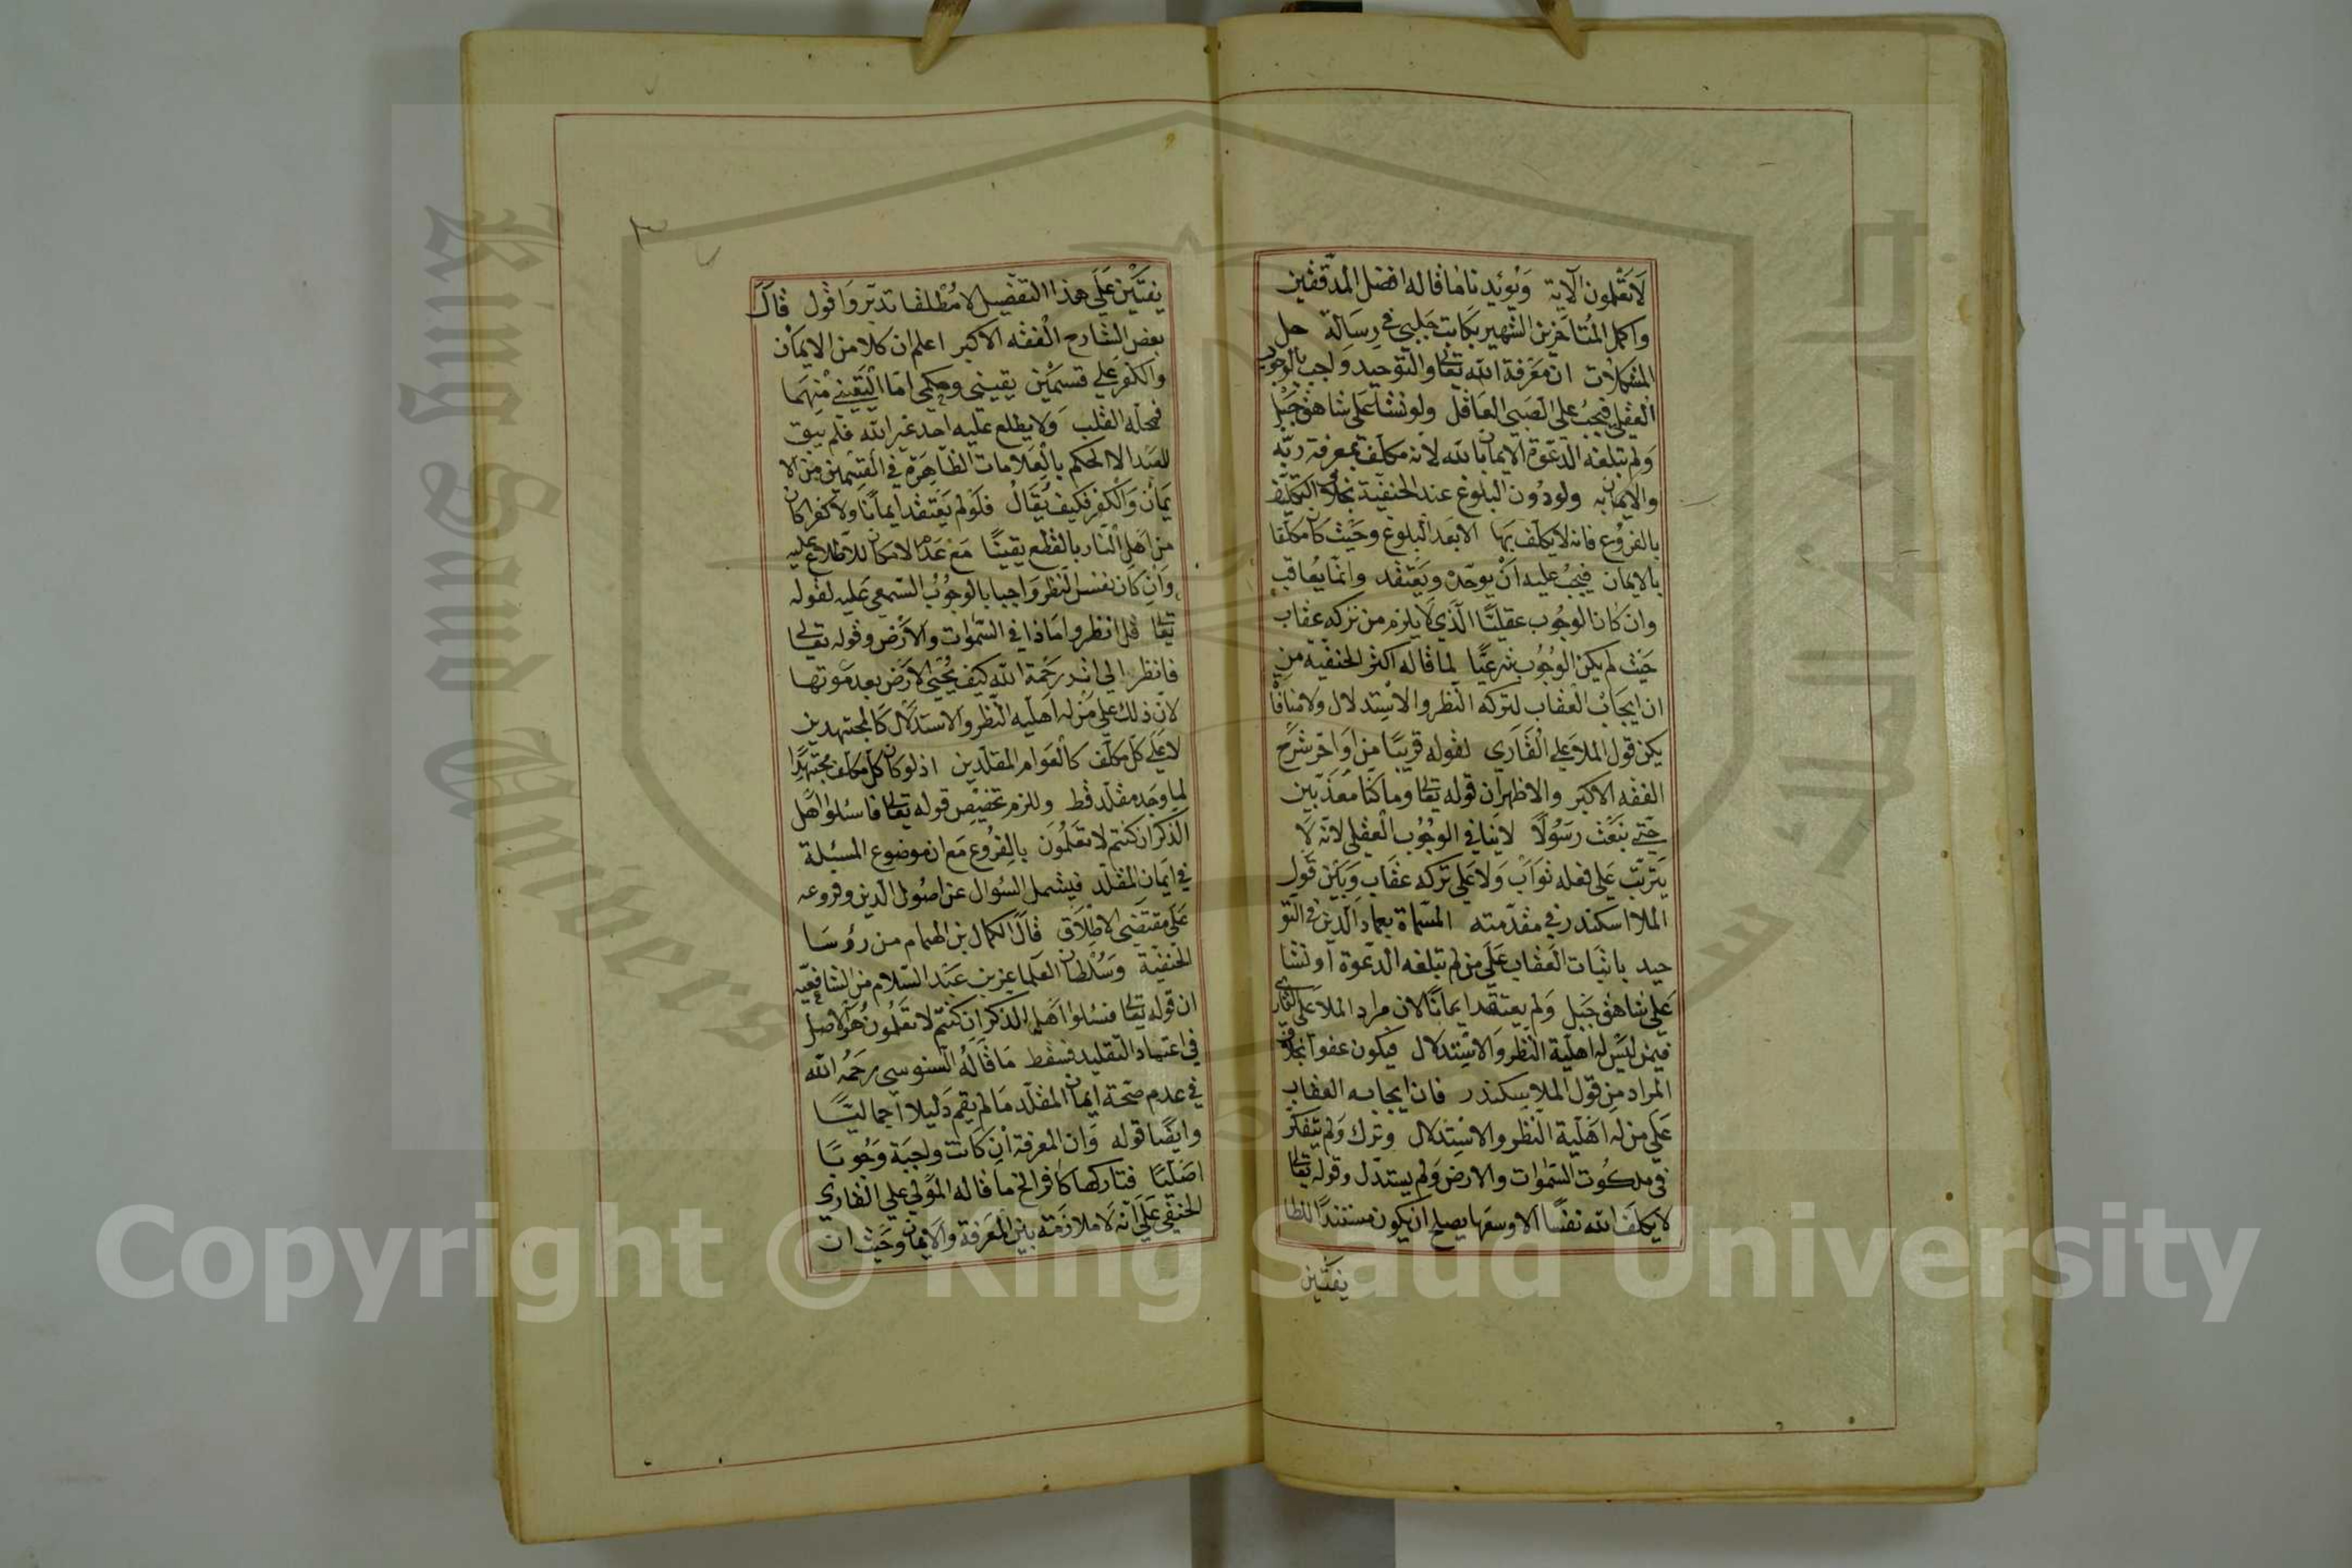 لا تعلمون الآية ويؤيدنا ما قاله افضل المدققين
واكمل المتأخرين الشهير بكاتب جلبي في رسالة حل
المشكلات ان معرفة الله تعالى والتوحيد واجب بالوجوب
العقلي فيجب على الصبي العاقل ولو نشأ على شاهق جبل
ولم تبلغه الدعوة الايمان بالله لانه مكلف بمعرفة ربه
والايمان به ولو دون البلوغ عند الحنفية بخلاف التكليف
بالفروع فانه لا يكلف بها الا بعد البلوغ وحيث كان مكلفا
بالايمان فيجب عليه ان يوحد ويعتقد وانما يعاقب
وان كان الوجوب عقليا الذي لا يلزم من تركه عقاب
حيث لم يكن الوجوب شرعيا لما قاله اكثر الحنفية من
ان ايجاب العقاب لتركه النظر والاستدلال ولا منافاة
يكن قول الملا علي القاري لقوله قريبا من اواخر شرح
الفقه الاكبر والاظهر ان قوله تعالى وما كنا معذبين
حتى نبعث رسولا لا ينافي الوجوب العقلي لانه لا
يترتب على فعله ثواب ولا على تركه عقاب وبين قول
الملا اسكندر في مقدمته المسماة بعماد الدين في التو
حيد باثبات العقاب على من لم تبلغه الدعوة او نشا
على شاهق جبل ولم يعتقد ايمانا لان مراد الملا على القاري
فيمن ليس له اهلية النظر والاستدلال فيكون عفوا بخلاف
المراد من قول الملا اسكندر فان ايجابه العقاب
على من له اهلية النظر والاستدلال وترك ولم يتفكر
في ملكوت السموات والارض ولم يستدل وقوله تعالى
لا يكلف الله نفسا الا وسعها يصلح ان يكون مستندا للطا
يفتين
يفتين على هذا التفصيل لا مطلقا تدبر واقول قال
بعض الشارح الفقه الاكبر اعلم ان كلا من الايمان
والكفر على قسمين يقيني وحكمي اما اليقيني منهما
فمحله القلب ولا يطلع عليه احد غير الله فلم يبق
للعبد الا الحكم بالعلامات الظاهرة في القسمين من الا
يمان والكفر فكيف يقال فلو لم يعتقد ايمانا ولا كفرا كان
من اهل النار بالقطع يقينا مع عدم الامكان للاطلاع عليه
وان كان نفس النظر واجبا بالوجوب السمعي عليه لقوله
تعالى قل انظروا ماذا في السموات والارض وقوله تعالى
فانظر الى اثر رحمة الله كيف يحيى الارض بعد موتها
لان ذلك على من له اهلية النظر والاستدلال كالمجتهدين
لا على كل مكلف كالعوام المقلدين اذ لو كان كل مكلف مجتهدا
لما وجد مقلد قط وللزم تخصيص قوله تعالى فاسئلوا اهل
الذكر ان كنتم لا تعلمون بالفروع مع ان موضوع المسئلة
في ايمان المقلد فيشمل السؤال عن اصول الدين وفروعه
على مقتضى الاطلاق قال الكمال بن الهمام من رؤسا
الحنفية وسلطان العلما عز بن عبد السلام من الشافعيه
ان قوله تعالى فسئلوا اهل الذكر ان كنتم لا تعلمون هو الاصل
في اعتماد التقليد فسقط ما قاله السنوسي رحمه الله
في عدم صحة ايمان المقلد ما لم يقم دليلا اجماليا
وايضا قوله وان المعرفة ان كانت واجبة وجوبا
اصليا فتاركها كافر الخ ما قاله المولى علي القاري
الحنفي على انه لا ملازمة بين المعرفة والايمان وحيث ان
Copyright © King Saud University
King Saud University